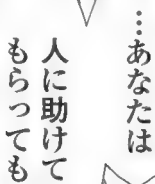 …あなたは
人に助けて
もらっても